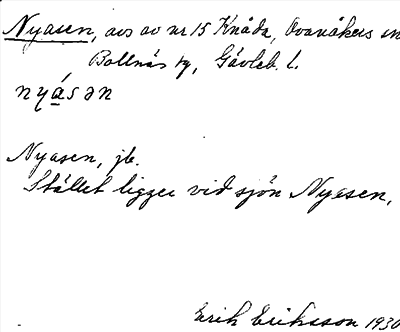 Nyasen, avs av nr 15 Knåda, Ovanåkers sn
Bollnäs tg, Gävleb. l.
nyásən
Nyasen, jb.
Stället ligger vid sjön Nyasen.
Erik Eriksson 1930